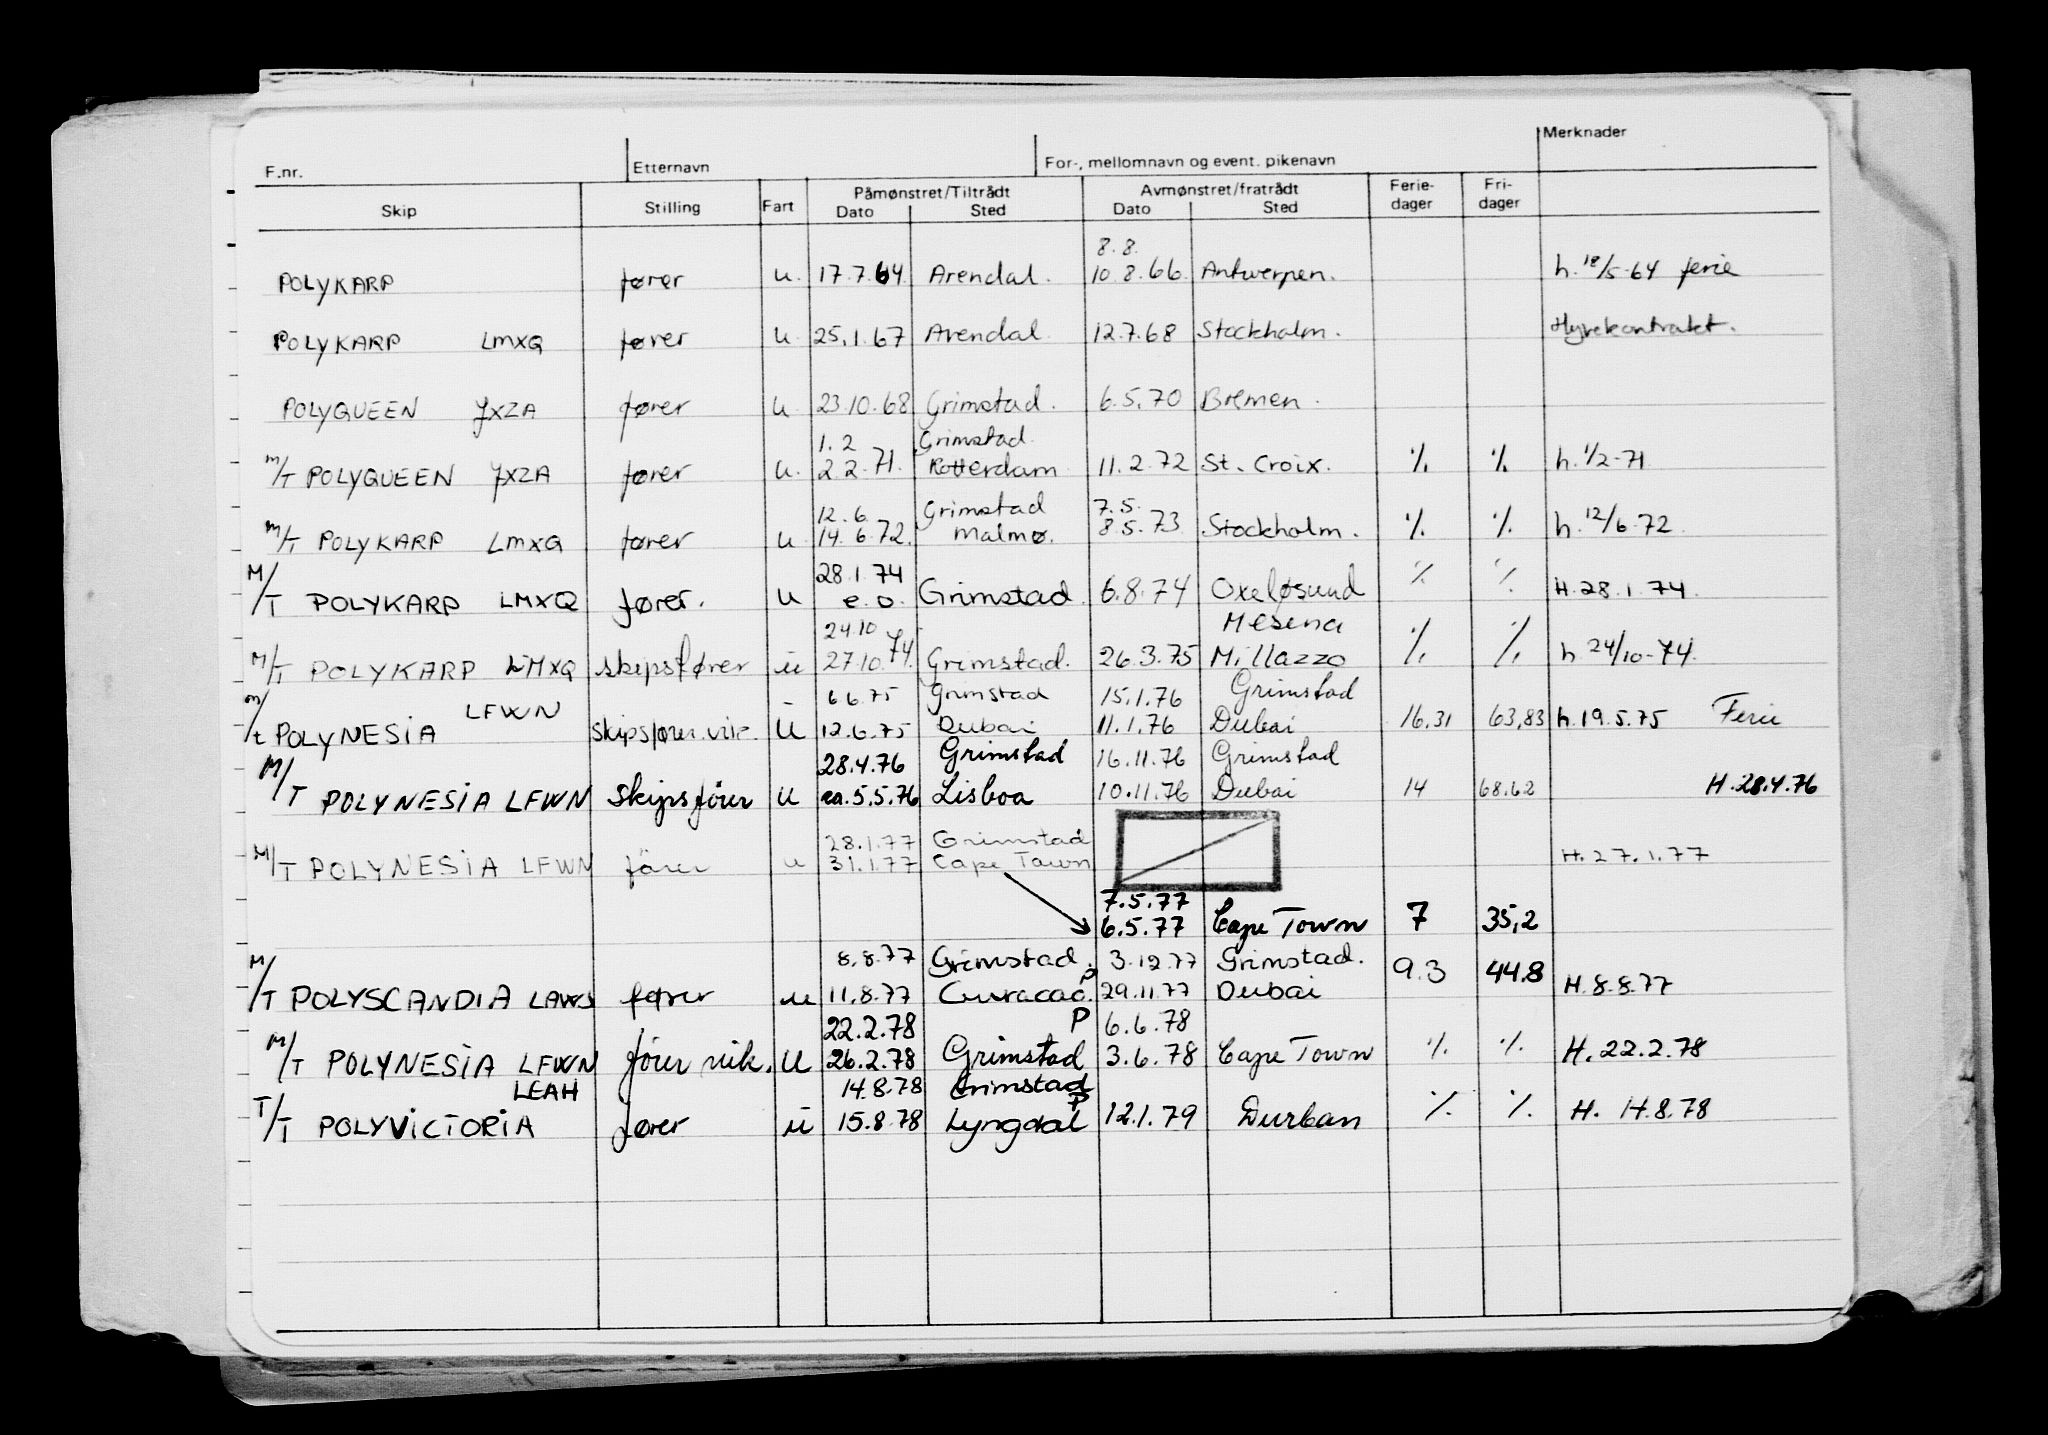 F.nr. Etternavn For-, mellomnavn og event. pikenavn Merknader
Skip Stilling Fart Påmønstret/Tiltrådt Avmønstret/fratrådt Ferie-dager Fri-dager
Dato Sted Dato Sted
8.8.
POLYKARP fører u. 17.7.64. Arendal. 10.8.66. Antwerpen. h. 18/5-64 ferie
POLYKARP LMXQ fører u 25.1.67 Arendal 12.7.68 Stockholm. Hyrekontrakt.
POLYQUEEN JXZA fører u 23.10.68 Grimstad. 6.5.70 Bremen.
1.2 Grimstad
M/T POLYQUEEN JXZA fører u. 2.2.71. Rotterdam 11.2.72 St. Croix. % % h. 1/2-71
12.6. Grimstad 7.5.
M/T POLYKARP LMXQ fører u 14.6.72. Malmø. 8.5.73 Stockholm. % % h. 12/6-72
28.1.74
M/T POLYKARP LMXQ fører. u e.o. Grimstad 6.8.74 Oxeløsund % % H.28.1.74.
24.10 Mesena
M/T POLYKARP LMXQ skipsfører u 27.10.74. Grimstad. 26.3.75 Millazzo % % h 24/10-74.
LFWN 6.6.75 Grimstad 15.1.76 Grimstad
m/t POLYNESIA skipsfører vik. u 12.6.75 Dubai 11.1.76 Dubai 16,31 63,83 h.19.5.75 Ferie
28.4.76 Grimstad 16.11.76 Grimstad
M/T POLYNESIA LFWN Skipsfører u ca.5.5.76 Lisboa 10.11.76 Dubai 14 68.62 H.28.4.76
28.1.77 Grimstad
M/T POLYNESIA LFWN fører u 31.1.77 Cape Town H.27.1.77
7.5.77
6.5.77 Cape Town 7 35,2
8.8.77 Grimstad. 3.12.77 Grimstad.
M/T POLYSCANDIA fører u 11.8.77 Curacao. P 29.11.77 Dubai 9.3 44.8 H.8.8.77
22.2.78 P 6.6.78
M/T POLYNESIA LFWN fører vik. u 26.2.78 Grimstad 3.6.78 Cape Town % % H.22.2.78
LEAH 14.8.78 Grimstad
T/T POLYVICTORIA fører u 15.8.78 Lyngdal P 12.1.79 Durban % % H. 14.8.78